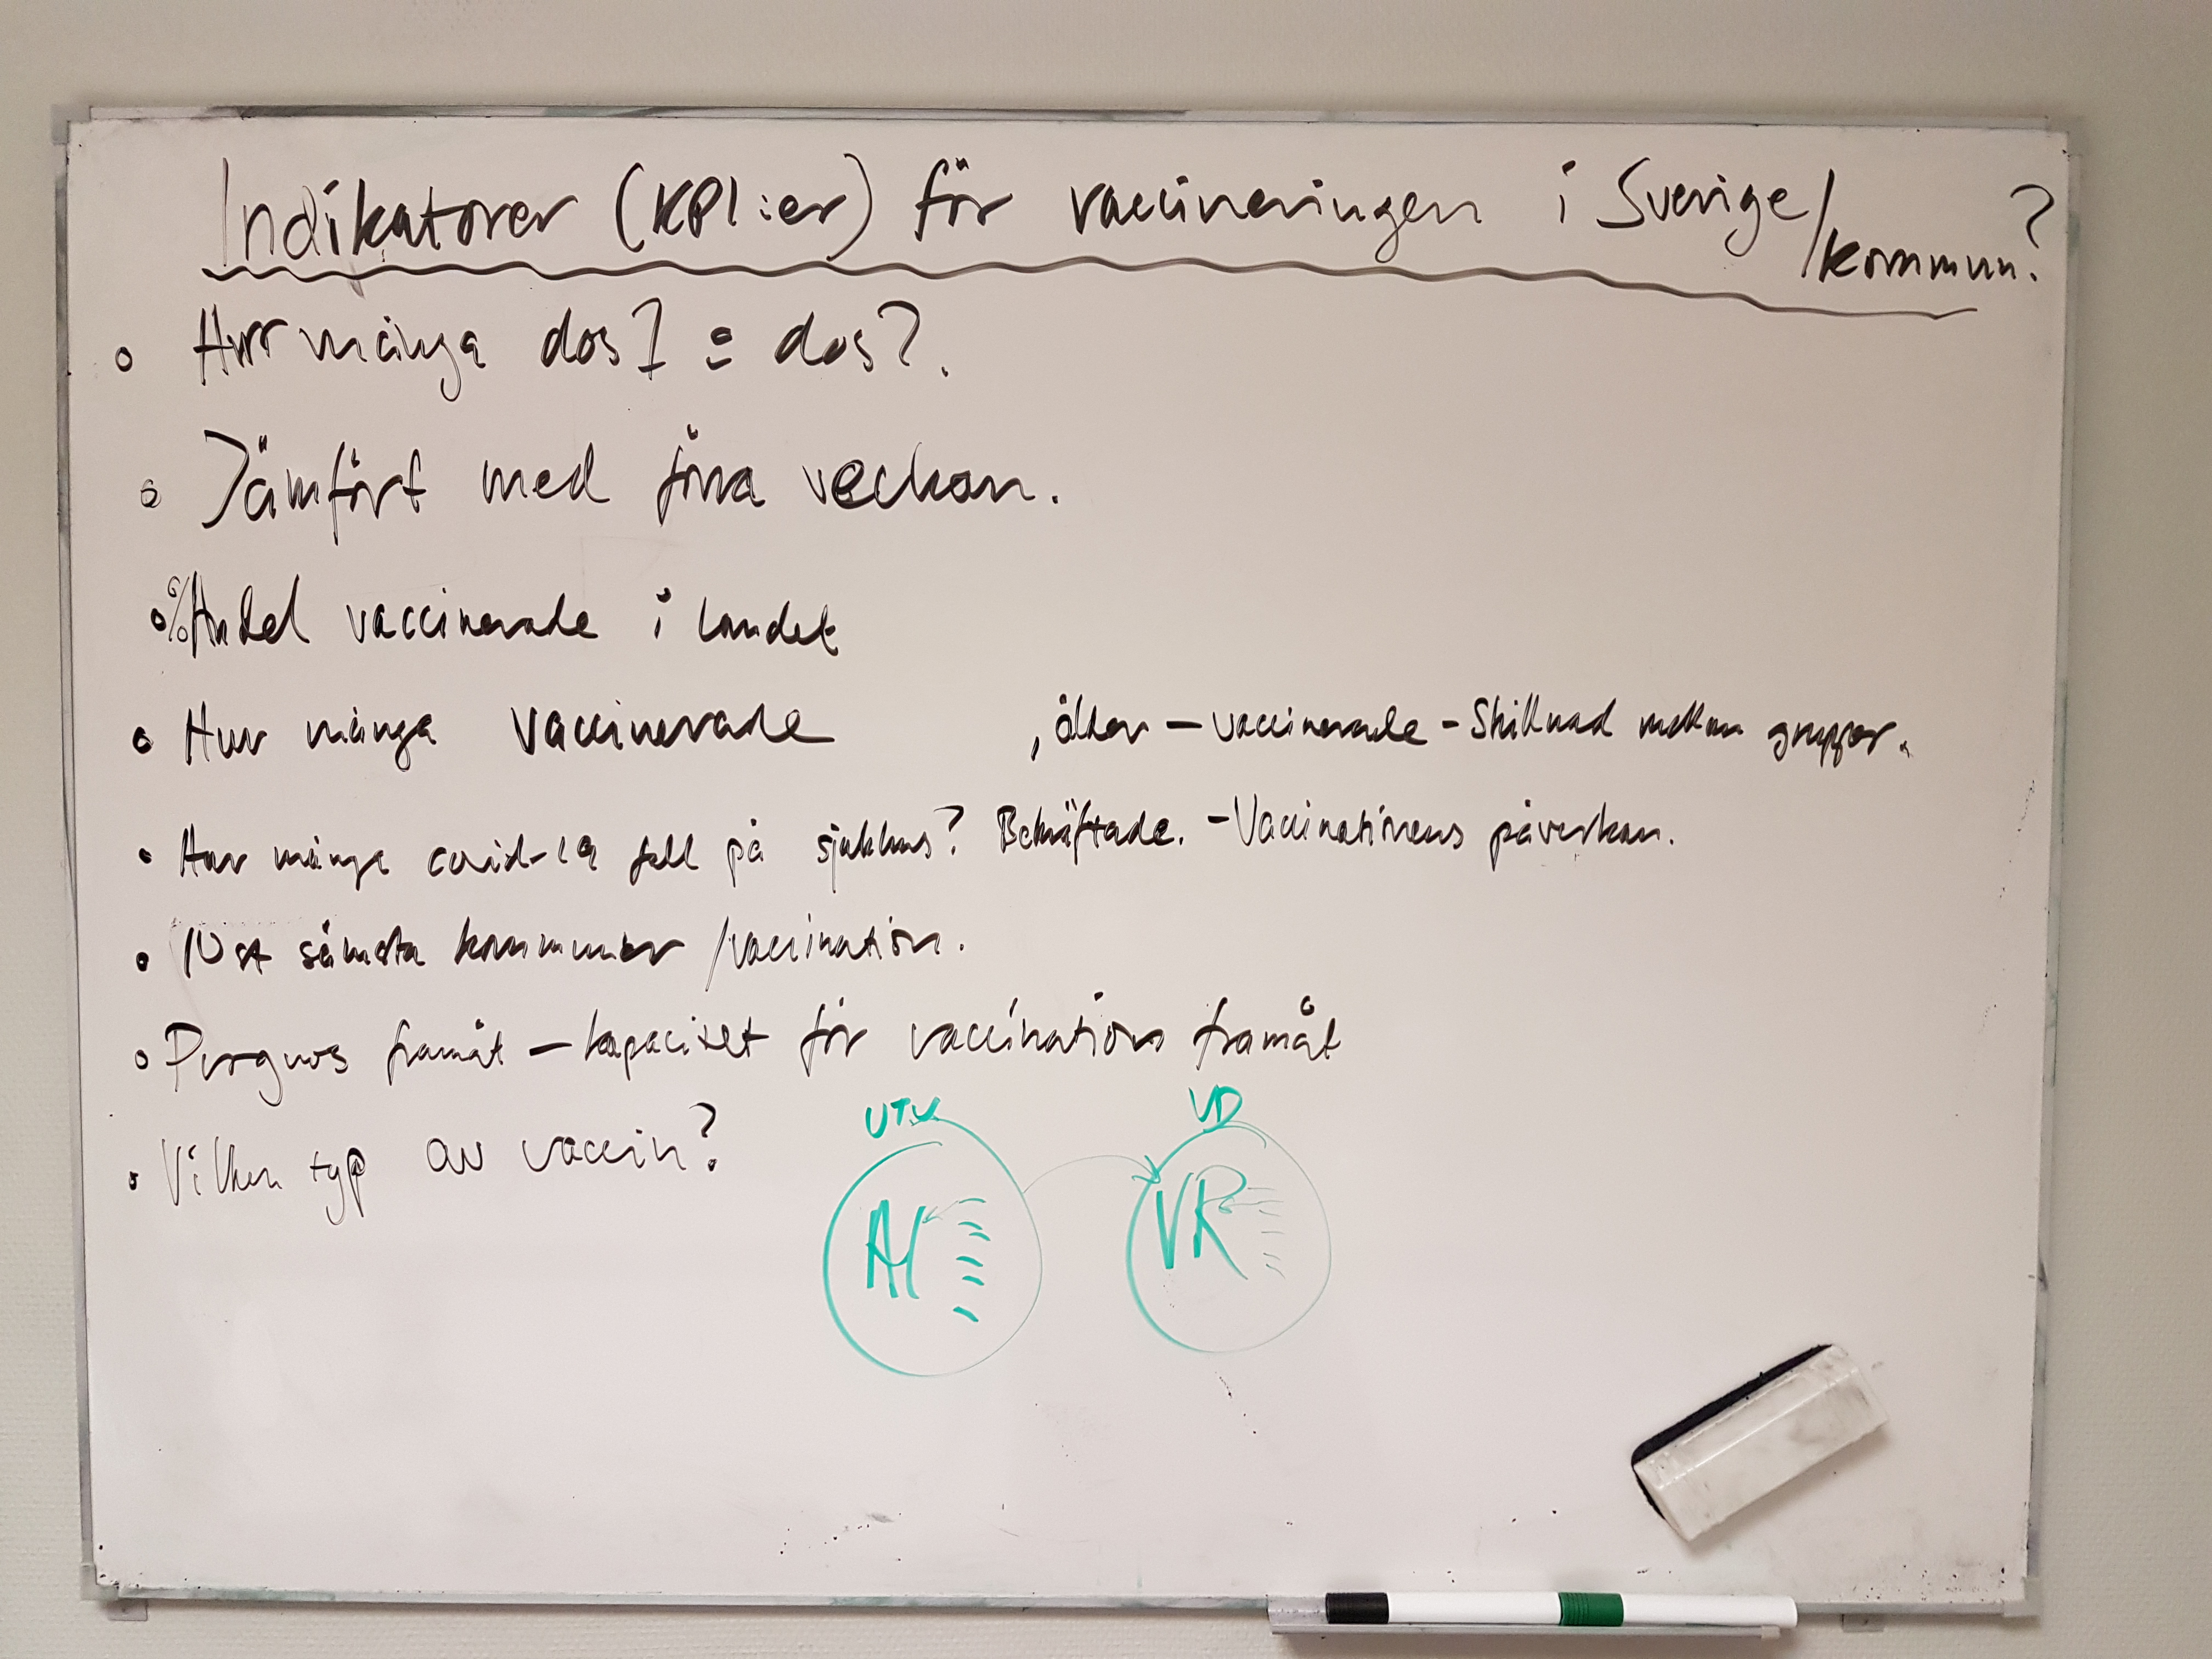 Indikatorer (KPI:er) för vaccineringen i Sverige/kommun?
Hur många dos 1 = dos?
Jämfört med förra veckan.
% Andel vaccinerade i landet
Hur många vaccinerade , ålder - vaccinerade - Skillnad mellan grupper.
Hur många covid-19 fall på sjukhus? Bekräftade. - Vaccinationens påverkan.
10 st sämsta kommuner /vaccination.
Prognos framåt - kapacitet för vaccination framåt
Vilken typ av vaccin?
UTV VD
VR